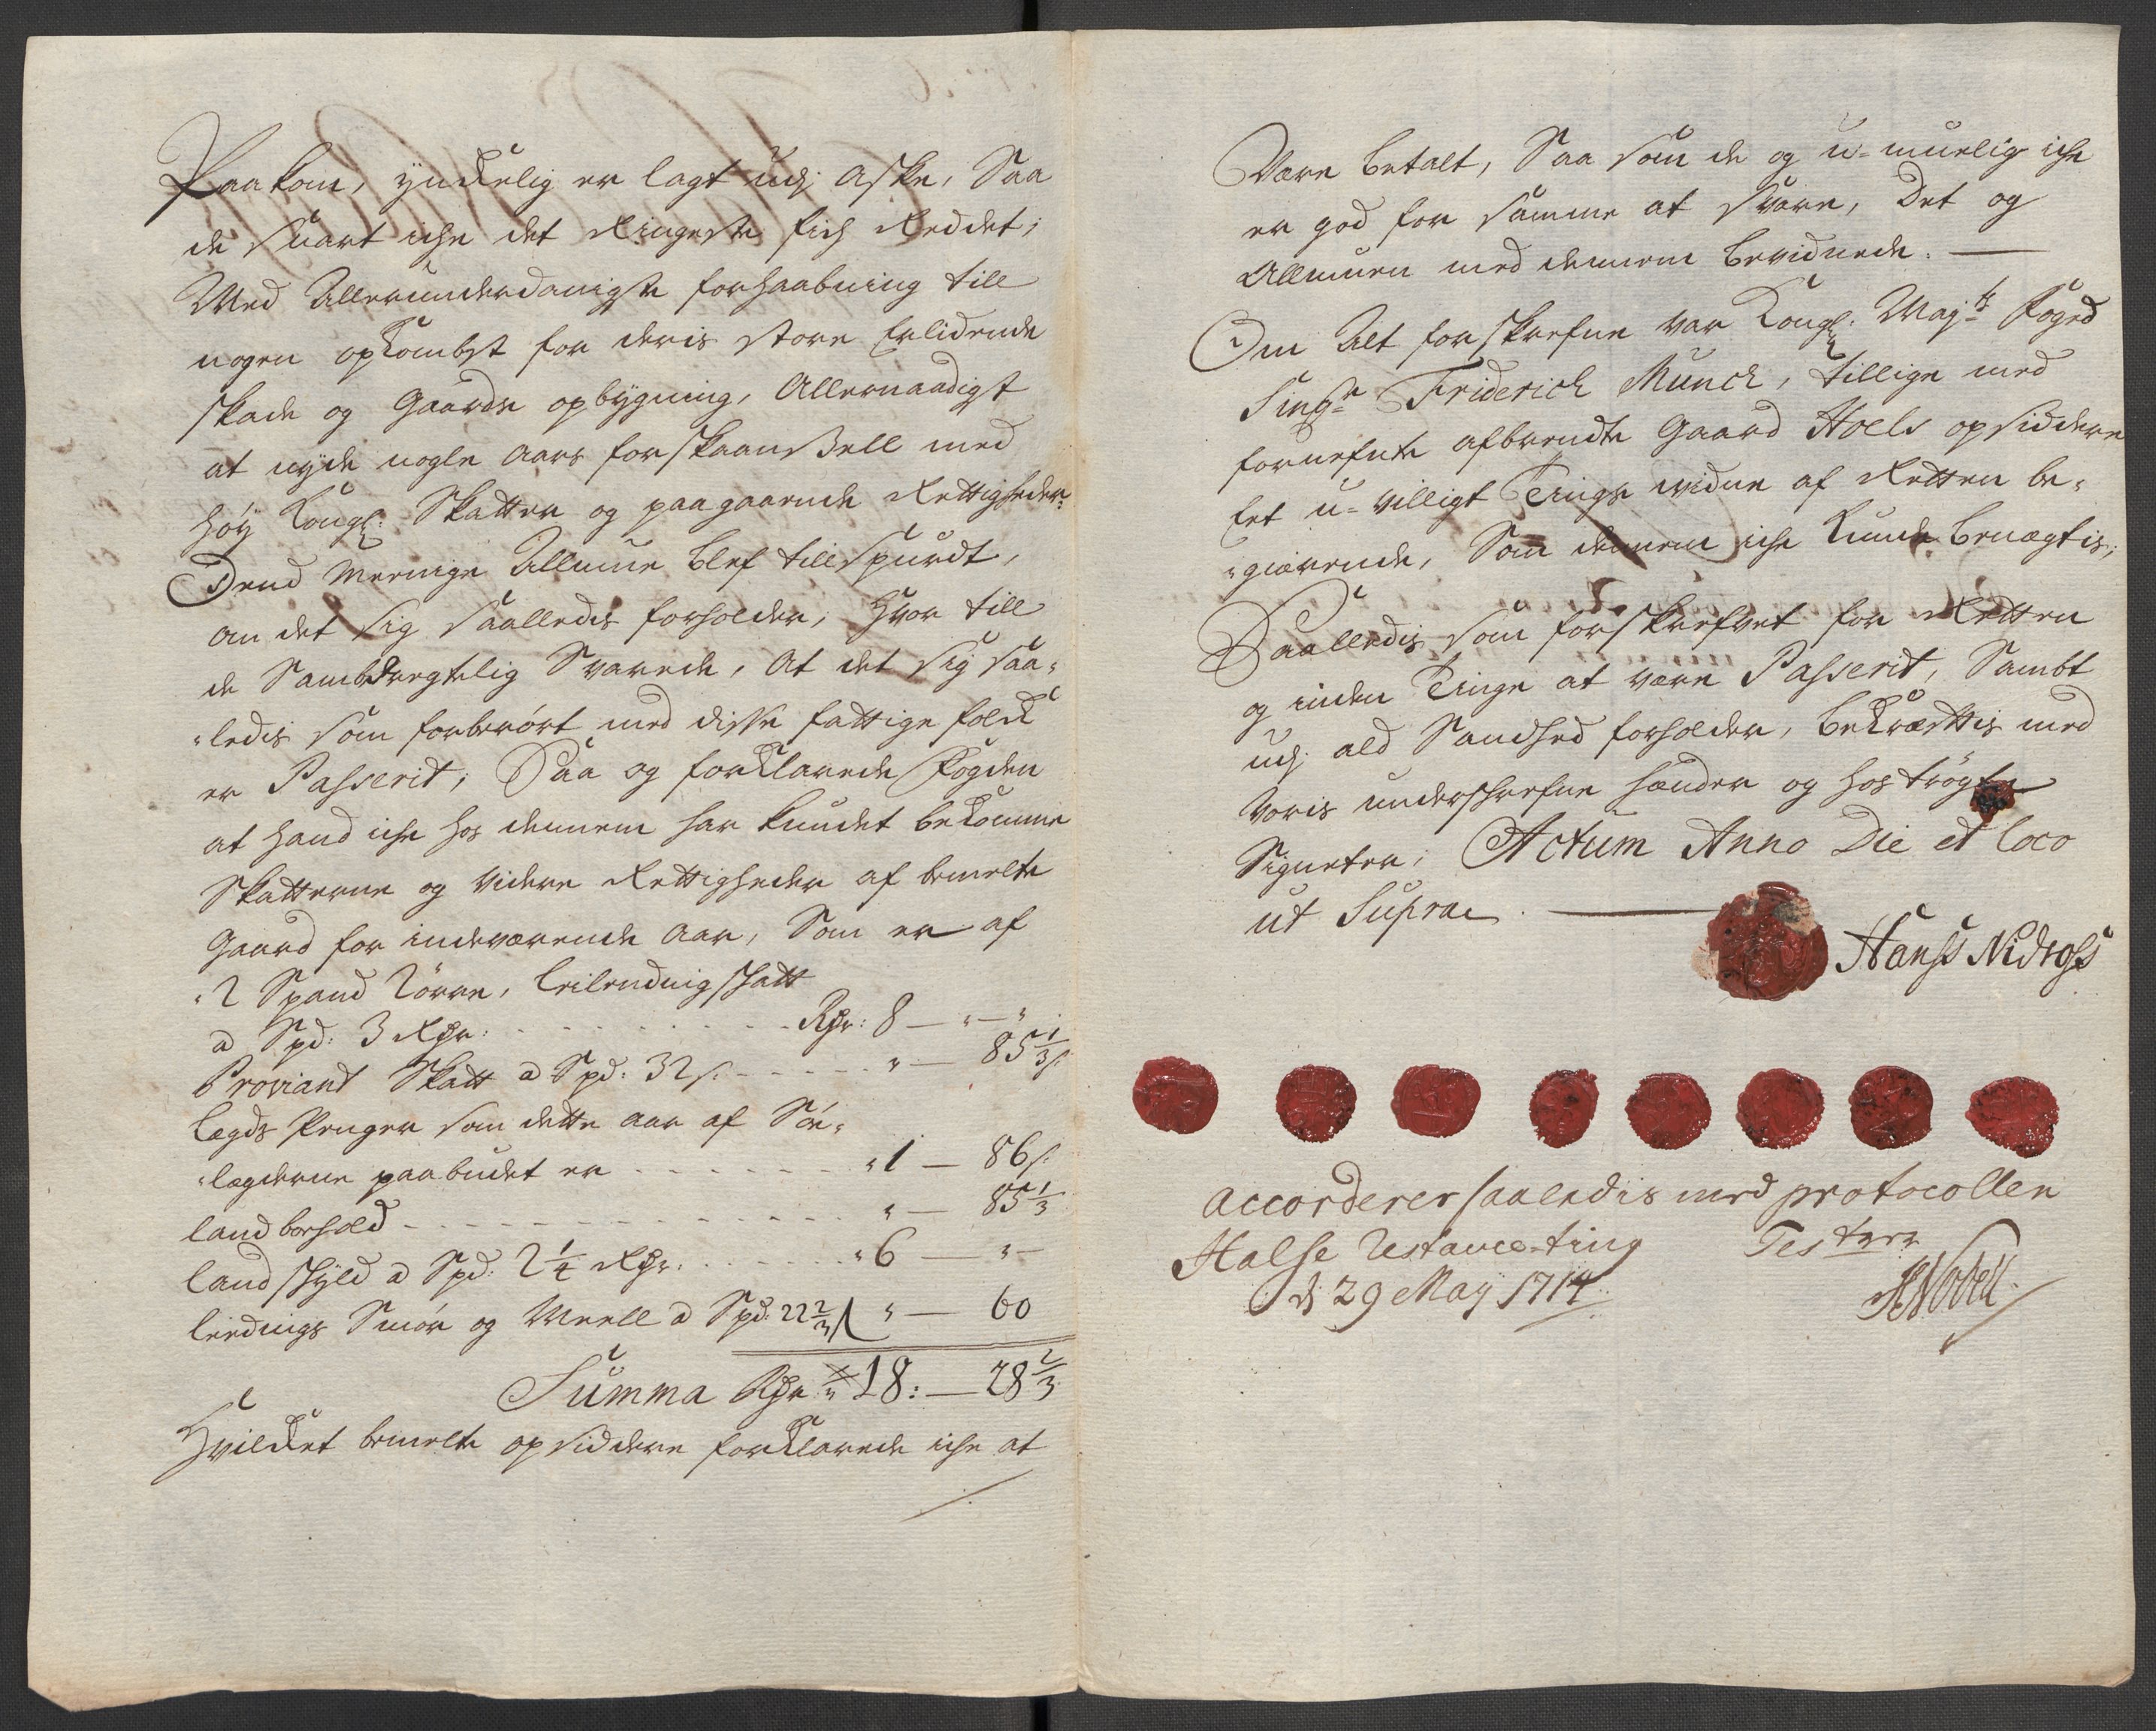 Paakom, ynckelig er lagt udj Aske, Saa
de snart iche det Ringeste fich Reddet;
Med Allerunderdanigste forhaabning till
nogen opkombst for deris store Erlidende
skade og Gaards opbygning, Allernaadigst
at nyde nogle Aars forskaanßell med
høy Kongl: Skatter og paagaaende Rettigheder,
Dend Meenige Allmue blef tillspurdt,
om det sig saalledis forholder; Hvor till
de Sambdregtelig Svarede, At det sig saa-
ledis som forberørt med disse fattige folck
er Passerit; Saa og forklarede Fogden
at hand iche hos dennem har kundet bekomme
Skatterne og videre Rettigheder af bemelte
Gaard for indeværende Aar, Som er af
2 Spand Leilendings schatt
a Spd: 3 Rdr: - - - Rdr: 8 — " — "
Proviant Skatt a Spd: 32 s. - - - " — 85 1/3 s.
Legds Penger som dette Aar af Søe-
legderne paabudet er - - - " 1 — 86 s.
landborhold - - - " — 85 1/3
landskyld a Spd: 2 1/4 Rdr. - - - " 6 — " —
leedings Smør og Meell a Spd: 22 2/3 s " — 60
Summa Rdr " 18: — 28 2/3
Hvilcket bemelte opsiddere forklarede iche at
Være betalt, Saa som de og u-muelig iche
er god for samme at svare, Det og
Allmuen med dennem bevidnede. —
Om Alt forskrefne var Kongl: Majts Foged
Singr Friderich Munch, tillige med
fornefnte afbrendte Gaard Hoels opsiddere
Eet u-villigt Tings vidne af Retten be-
giærende, Som dennem iche kunde benægtis;
Saalledis som forskrefvet for Retten
og inden Tinge at være Passerit, Sambt
udj ald Sandhed forholder, bekræfftis med
voris underschrefne hænder og hostrøgte
Signeter; Actum Anno Die et loco
ut Supra .—
Hanss Nidross
Accorderer saaledis med protocollen
Halse ting Testerer
d 29 May 1714.